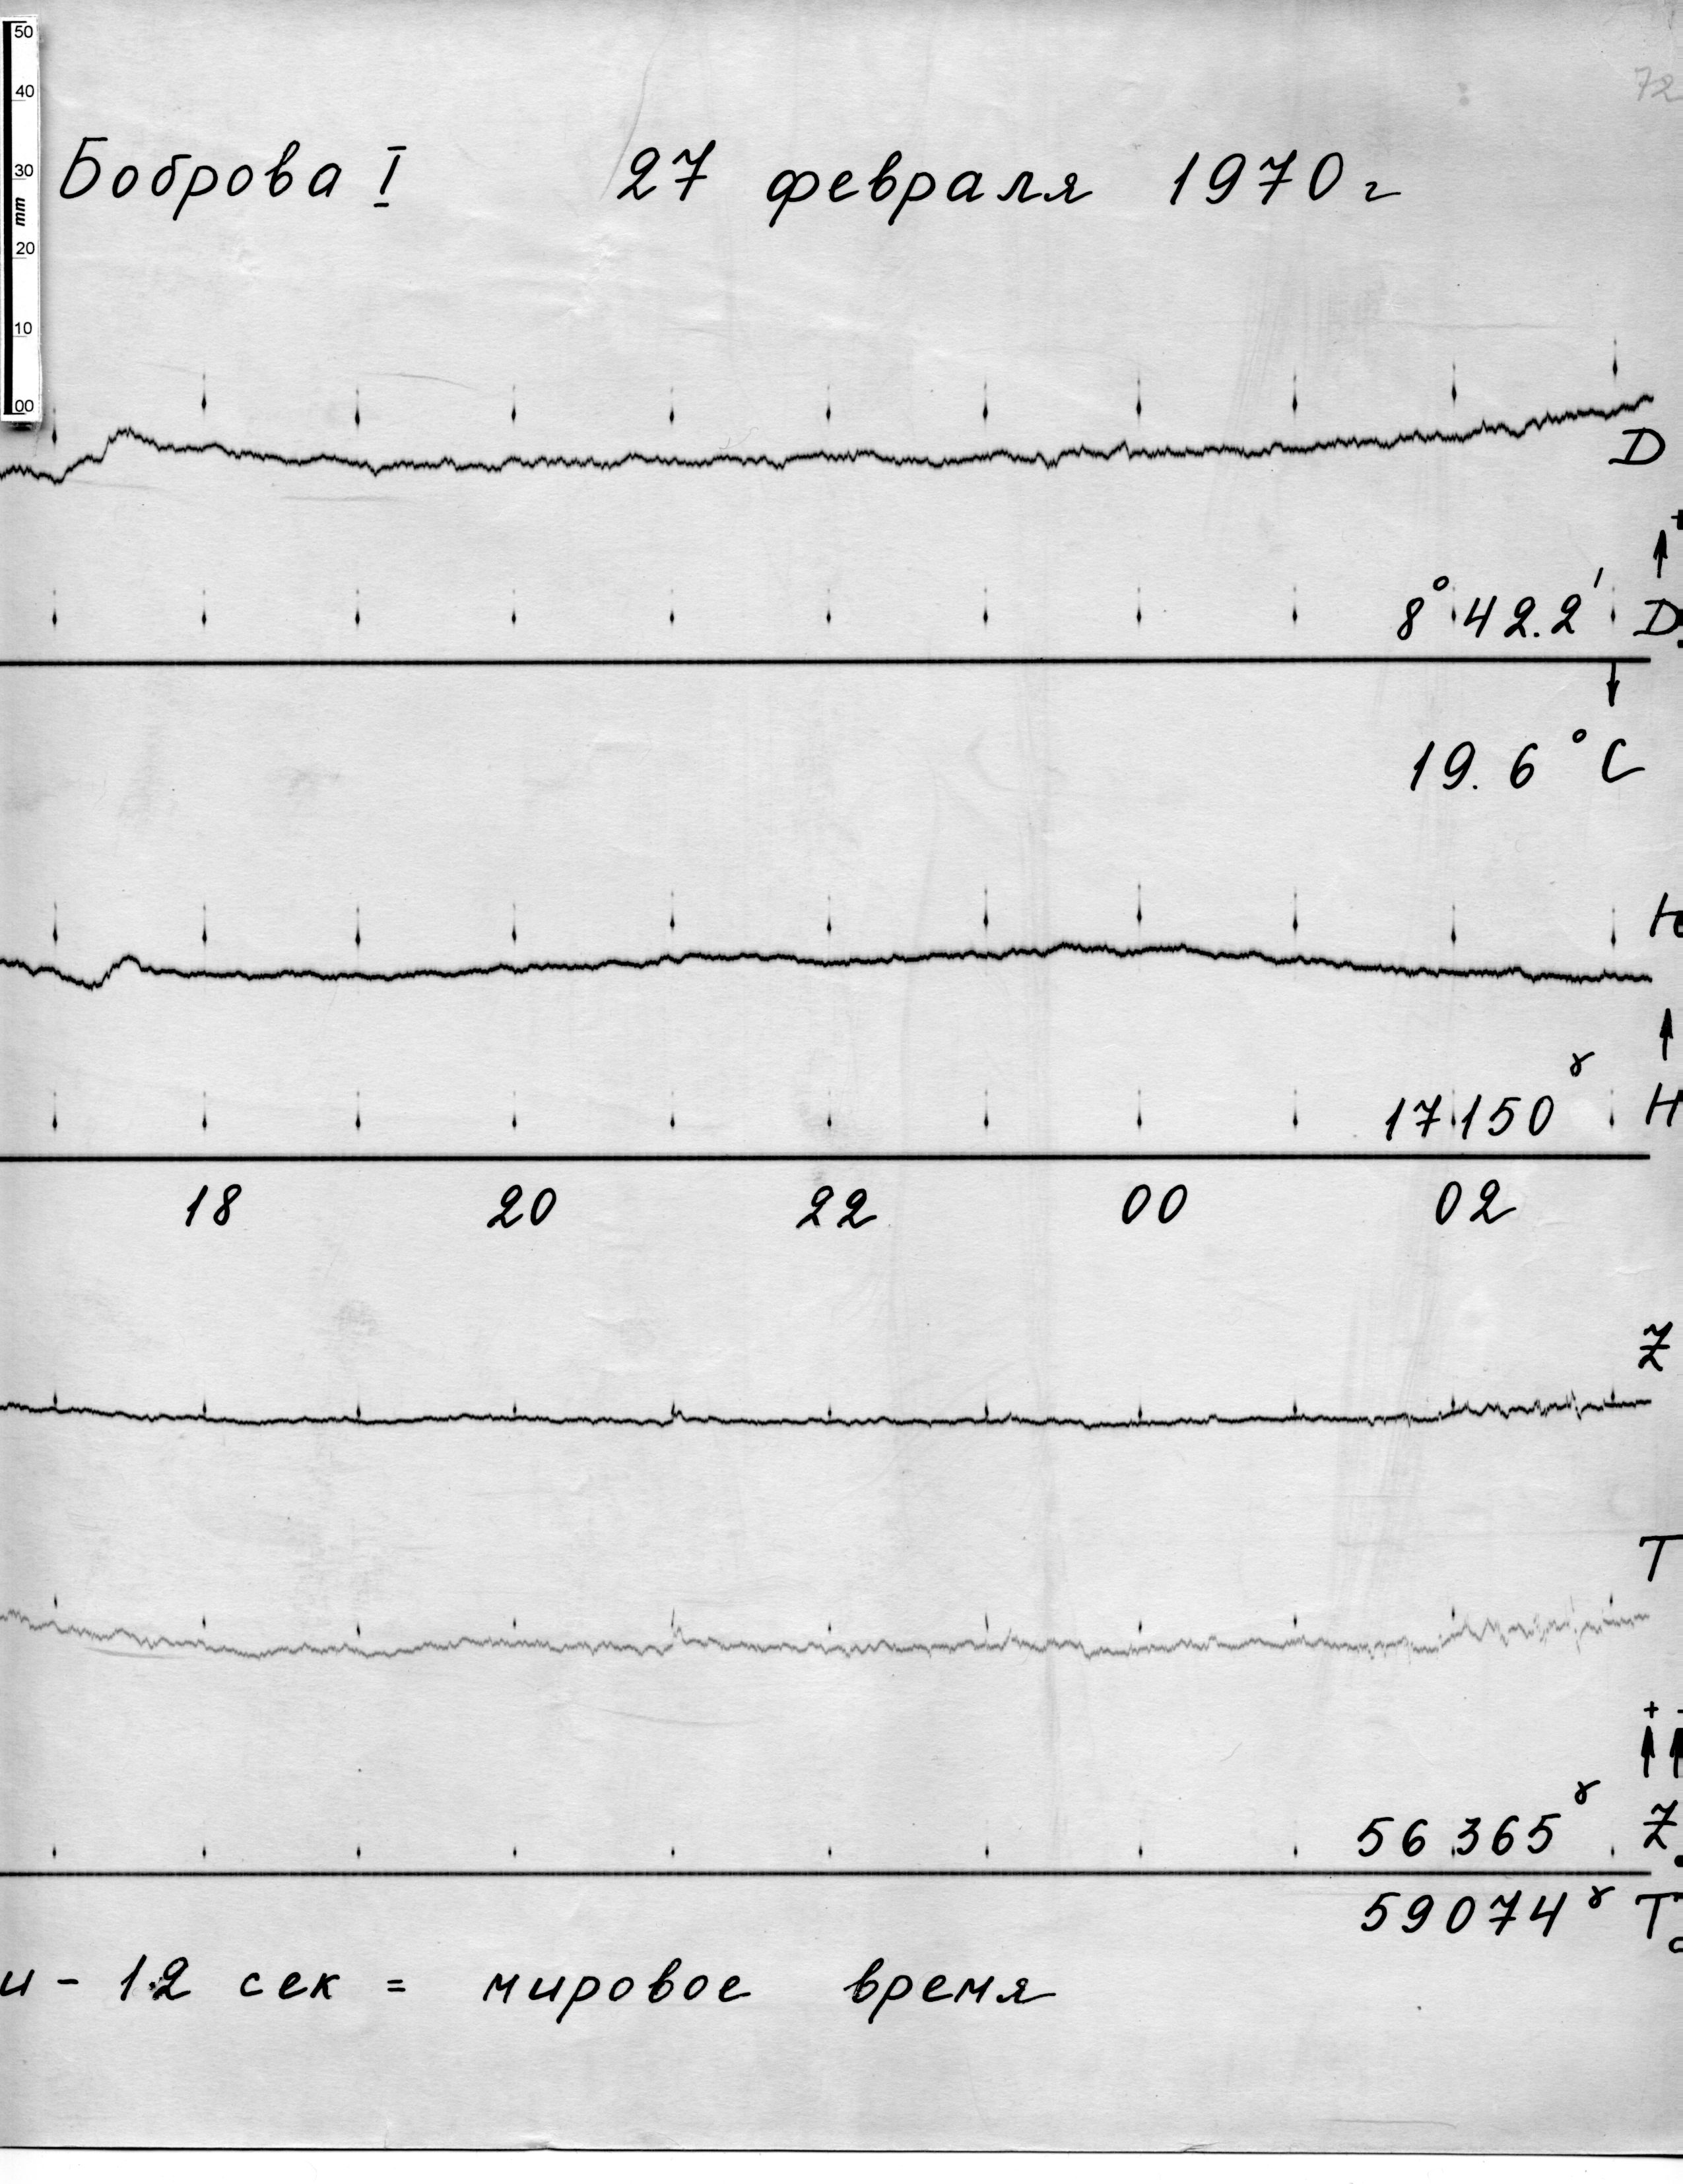 50
40
30
mm
20
10
00
72
Боброва I 27 февраля 1970 г
D
+
8° 42.2' D
19.6 °C
H
17150 γ H
18 20 22 00 02
Z
T
+ -
56 365 γ Z
59074 γ T
и - 12 сек = мировое время